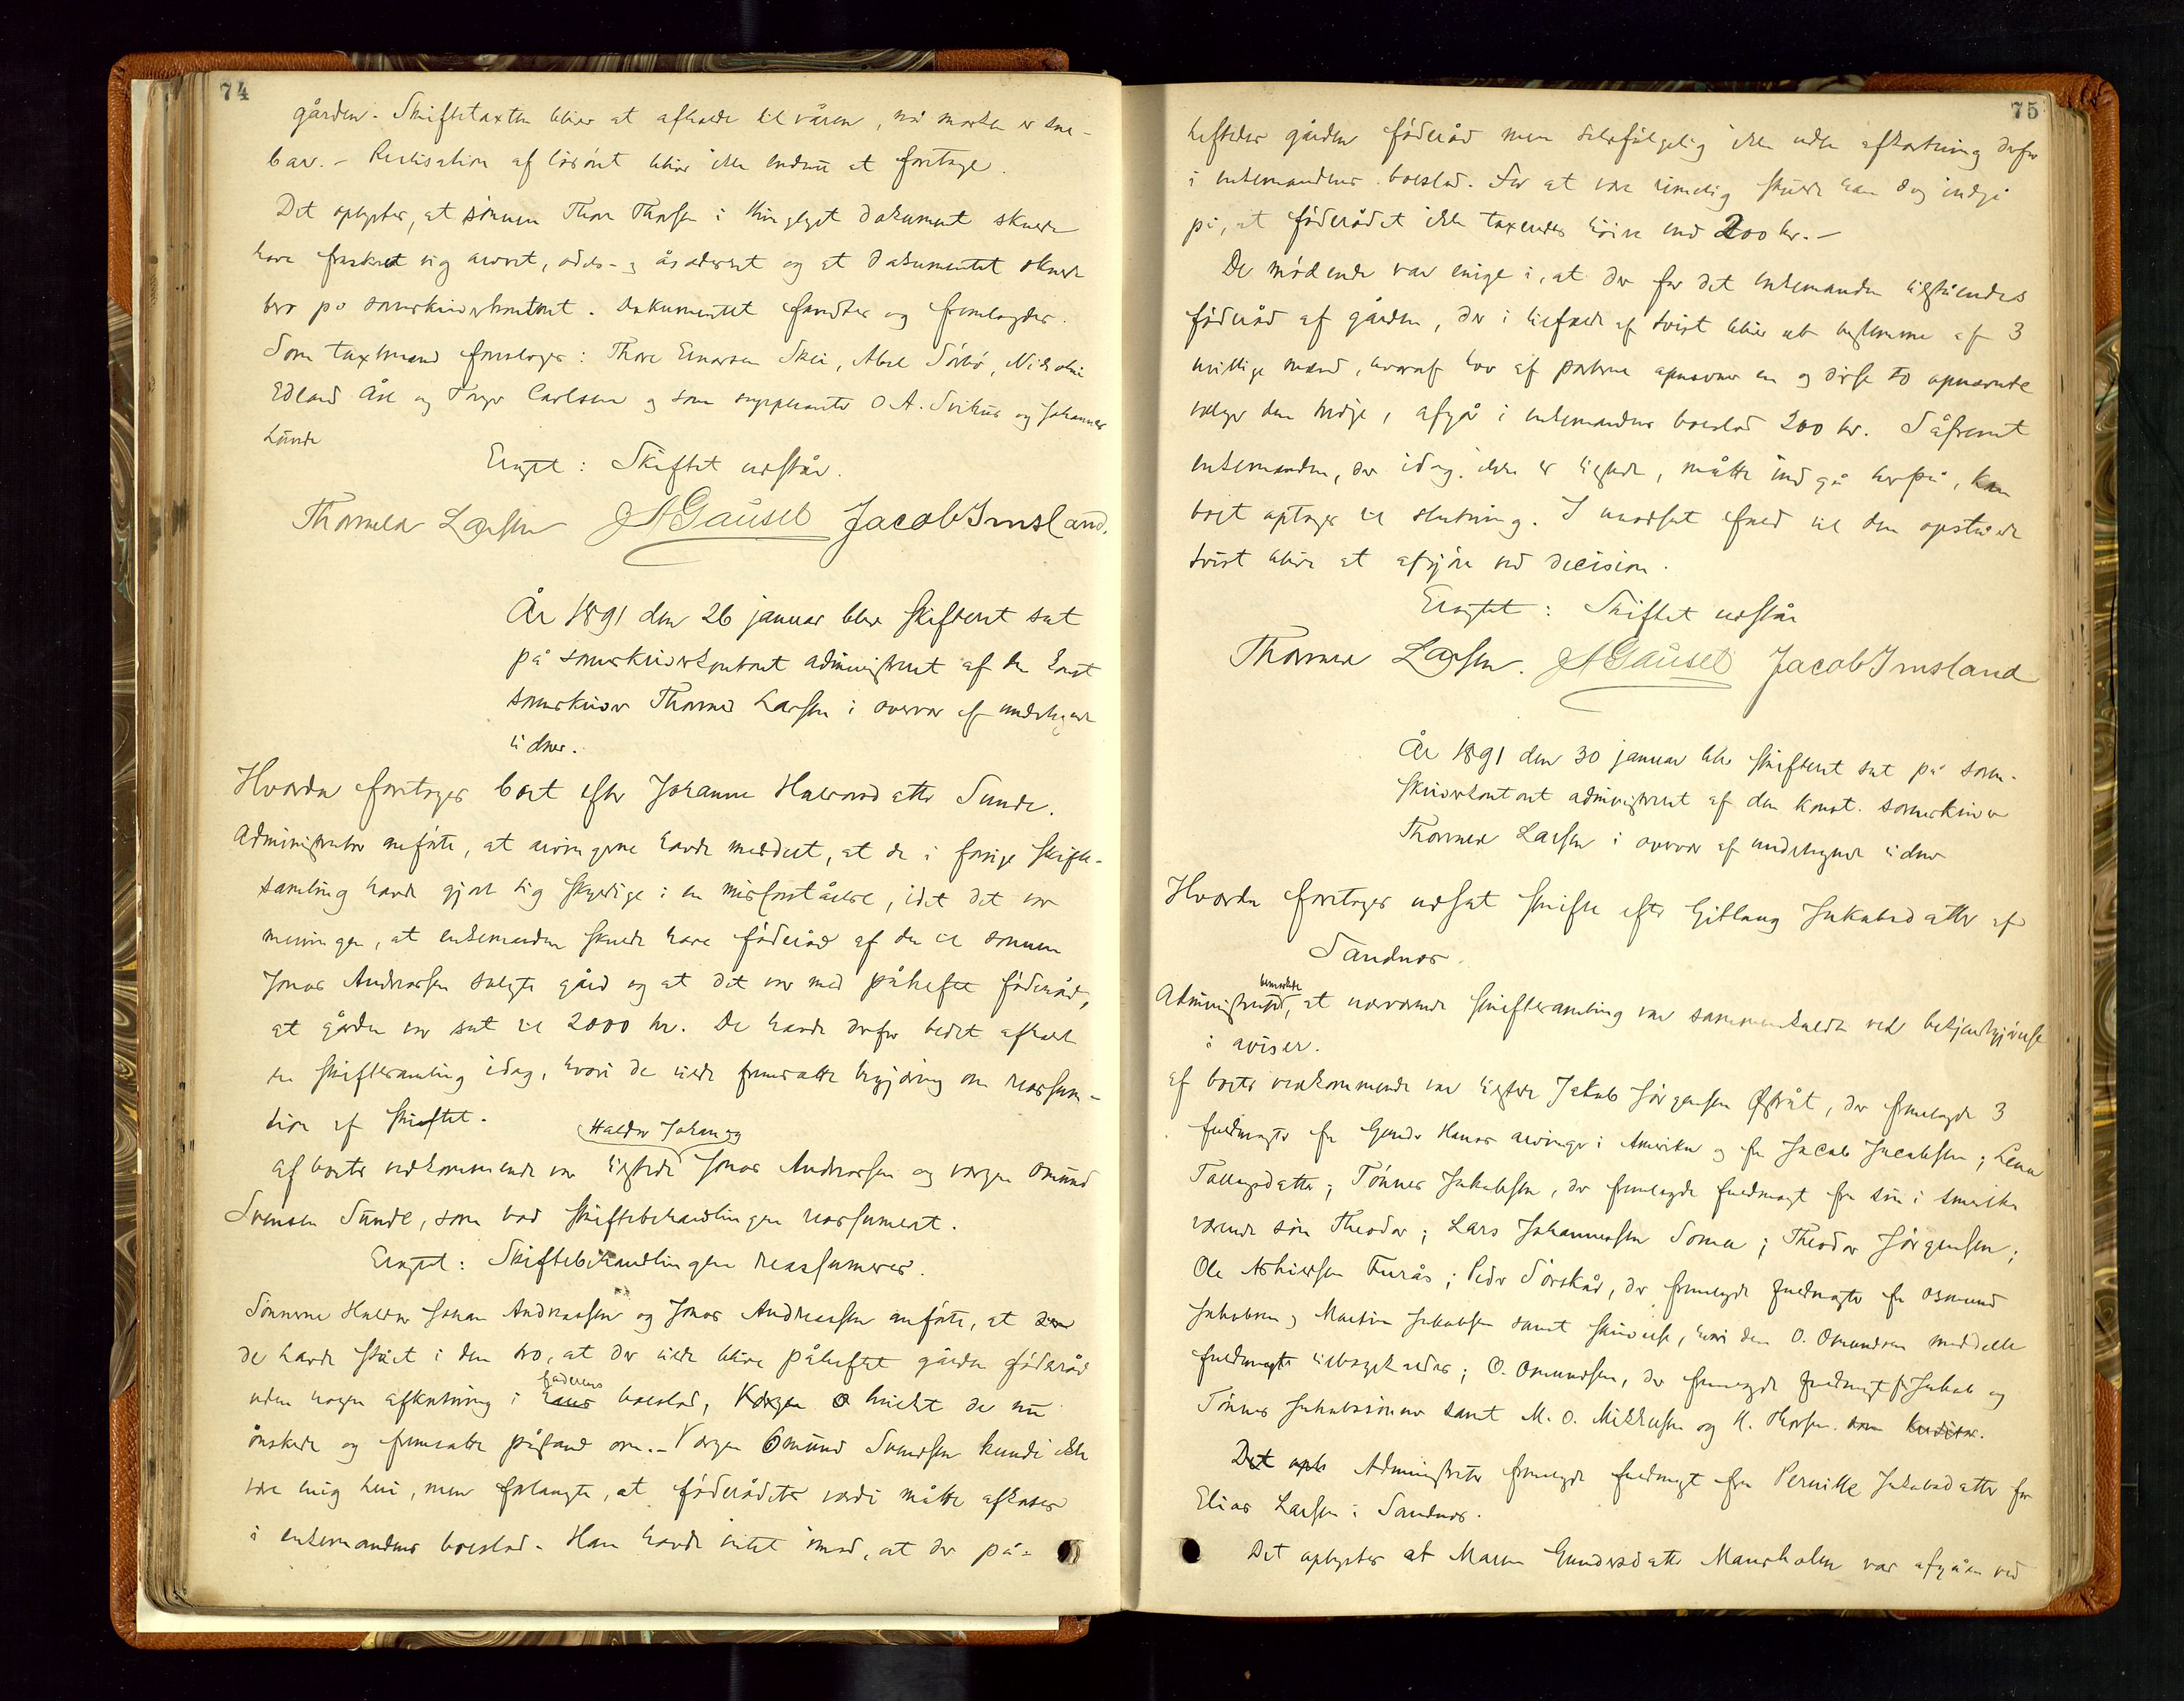 74
gården. Skiftetaxten bliver at afholde til våren, når marken er sne-
bar. - Realisation af løsøret bliver ikke endnu at foretage.
Det oplystes, at sønnen Thore Thorsen i thinglyst dokument skulde
have fraskrevet sig arveret, odels- og åsædesret og at dokumentet skulde
bero på sorenskriverkontoret. Dokumentet fandtes og fremlagdes.
Som taxtmænd foresloges: Thore Einarsen Skei, Abel Sørbø, Nikolai
Edland Åse og Carlsen og som suppleanter O. A. og Johannes
Lunde
Eragtet: Skiftet udstår.
Thormod Larsen A Gausel Jacob Imsland.
År 1891 den 26 januar blev skifteret sat
på sorenskriverkontoret administreret af den konst
sorenskriver Thormod Larsen i overvær af undertegnede
vidner.
Hvorda foretoges boet efter Johanne Halvorsdatter Sunde.
Administrator anførte, at arvingerne havde meddelt, at de i forrige skifte-
samling havde gjort sig skyldige i en misforståelse, idet det var
meningen, at enkemanden skulde have føderåd af den til sønnen
Jonas Andreassen solgte gård og at det var med påheftet føderåd,
at gården var sat til 2000 kr. De havde derfor bedet afholdt
en skiftesamling idag, hvori de vilde fremsætte begjæring om reassum-
tion af skiftet.
Haldor Johan og
af boets vedkommende var tilstede Jonas Andreassen og værgen Omund
Svensen Sunde, som bad skiftebehandlingen reassumeret.
Eragtet: Skiftebehandlingen reassumeres.
Sønnerne Haldor Johan Andreassen og Jonas Andreassen anførte, at der
de havde stået i den tro, at der vilde blive påheftet gården føderåd
faderens
uden nogen afkortning i hans boeslod, Værgen O hvilket de nu
ønskede og fremsatte påstand om. - Værgen Omund Svendsen kunde ikke
være enig heri, men forlangte, at føderådets værdi måtte afkortes
i enkemandens boeslod. Han havde intet imod, at der på-
75
heftedes gården føderåd men selvfølgelig ikke uden afkortning derfor
i enkemandens boeslod. For at være rimelig skulde han dog indgå
på, at føderådet ikke taxeredes høiere end 200 kr. -
De mødende var enige i, at der for det enkemanden tilstående
føderåd af gården, der i tilfælde af tvist bliver at bestemme af 3
uvillige mænd, hvoraf hver af parterne opnævner en og disse to opnævnte
vælger den tredje, afgår i enkemandens boeslod 200 kr. Såfremt
enkemanden, der idag ikke er tilstede, måtte indgå herpå, kan
boet optages til slutning. I modsat fald vil den opståede
tvist blive at afgjøre ved decision.
Eragtet: Skiftet udstår
Thormod Larsen. A Gausel Jacob Imsland
År 1891 den 30 januar blev skifteret sat på soren-
skriverkontoret administreret af den konst. sorenskriver
Thormod Larsen i overvær af undertegnede vidner
Hvorda foretoges udsat skifte efter Gitlaug Jakobsdatter af
Sandnes.
bemærkede
Administrator, at nærværende skiftesamling var sammenkaldt ved bekjendtgjørelse
i aviser.
af boets vedkommende var tilstede Jakob Jørgensen Østråt, der fremlagde 3
fuldmagter fra Gunder arvinger i Amerika og fra Jacob Jacobsen; Lena
Tollagsdatter; Tønnes Jakobsen, der fremlagde fuldmagt fra sin i Amerika
værende søn Theodor; Lars Johannessen Soma; Theodor Jørgensen;
Ole Furås; Peder Sørskår, der fremlagde fuldmagter fra Osmund
Jakobsen og Martin Jakobsen samt skrivelse, hvori den O. Omundsen meddelte
fuldmagt tilbagekaldes; O. Omundsen, der fremlagde fuldmagt fra Jakob og
Tønnes Jakobsønner samt M. O. Mikkelsen og K. som kreditor.
Det opl Administrator fremlagde fuldmagt fra Pernille Jakobsdatter for
Elias Larsen i Sandnes.
Det oplystes at Maren Gundersdatter var afgåen ved